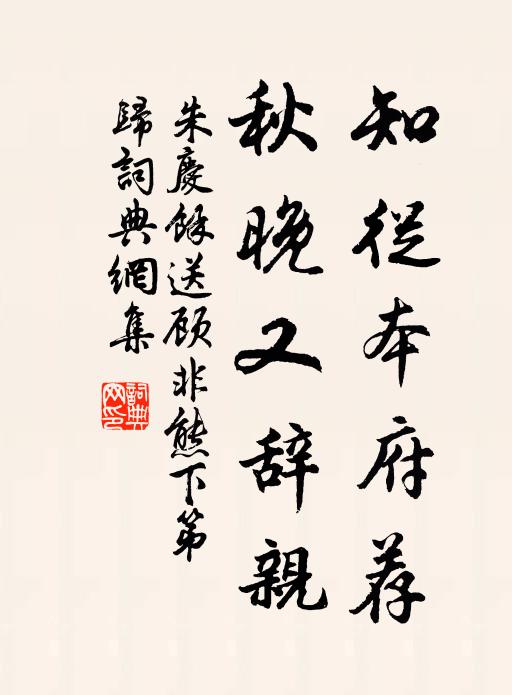 知從本府荐
秋晚又辞親
朱慶餘送顾非熊下第
歸詞典網集
詞典网印